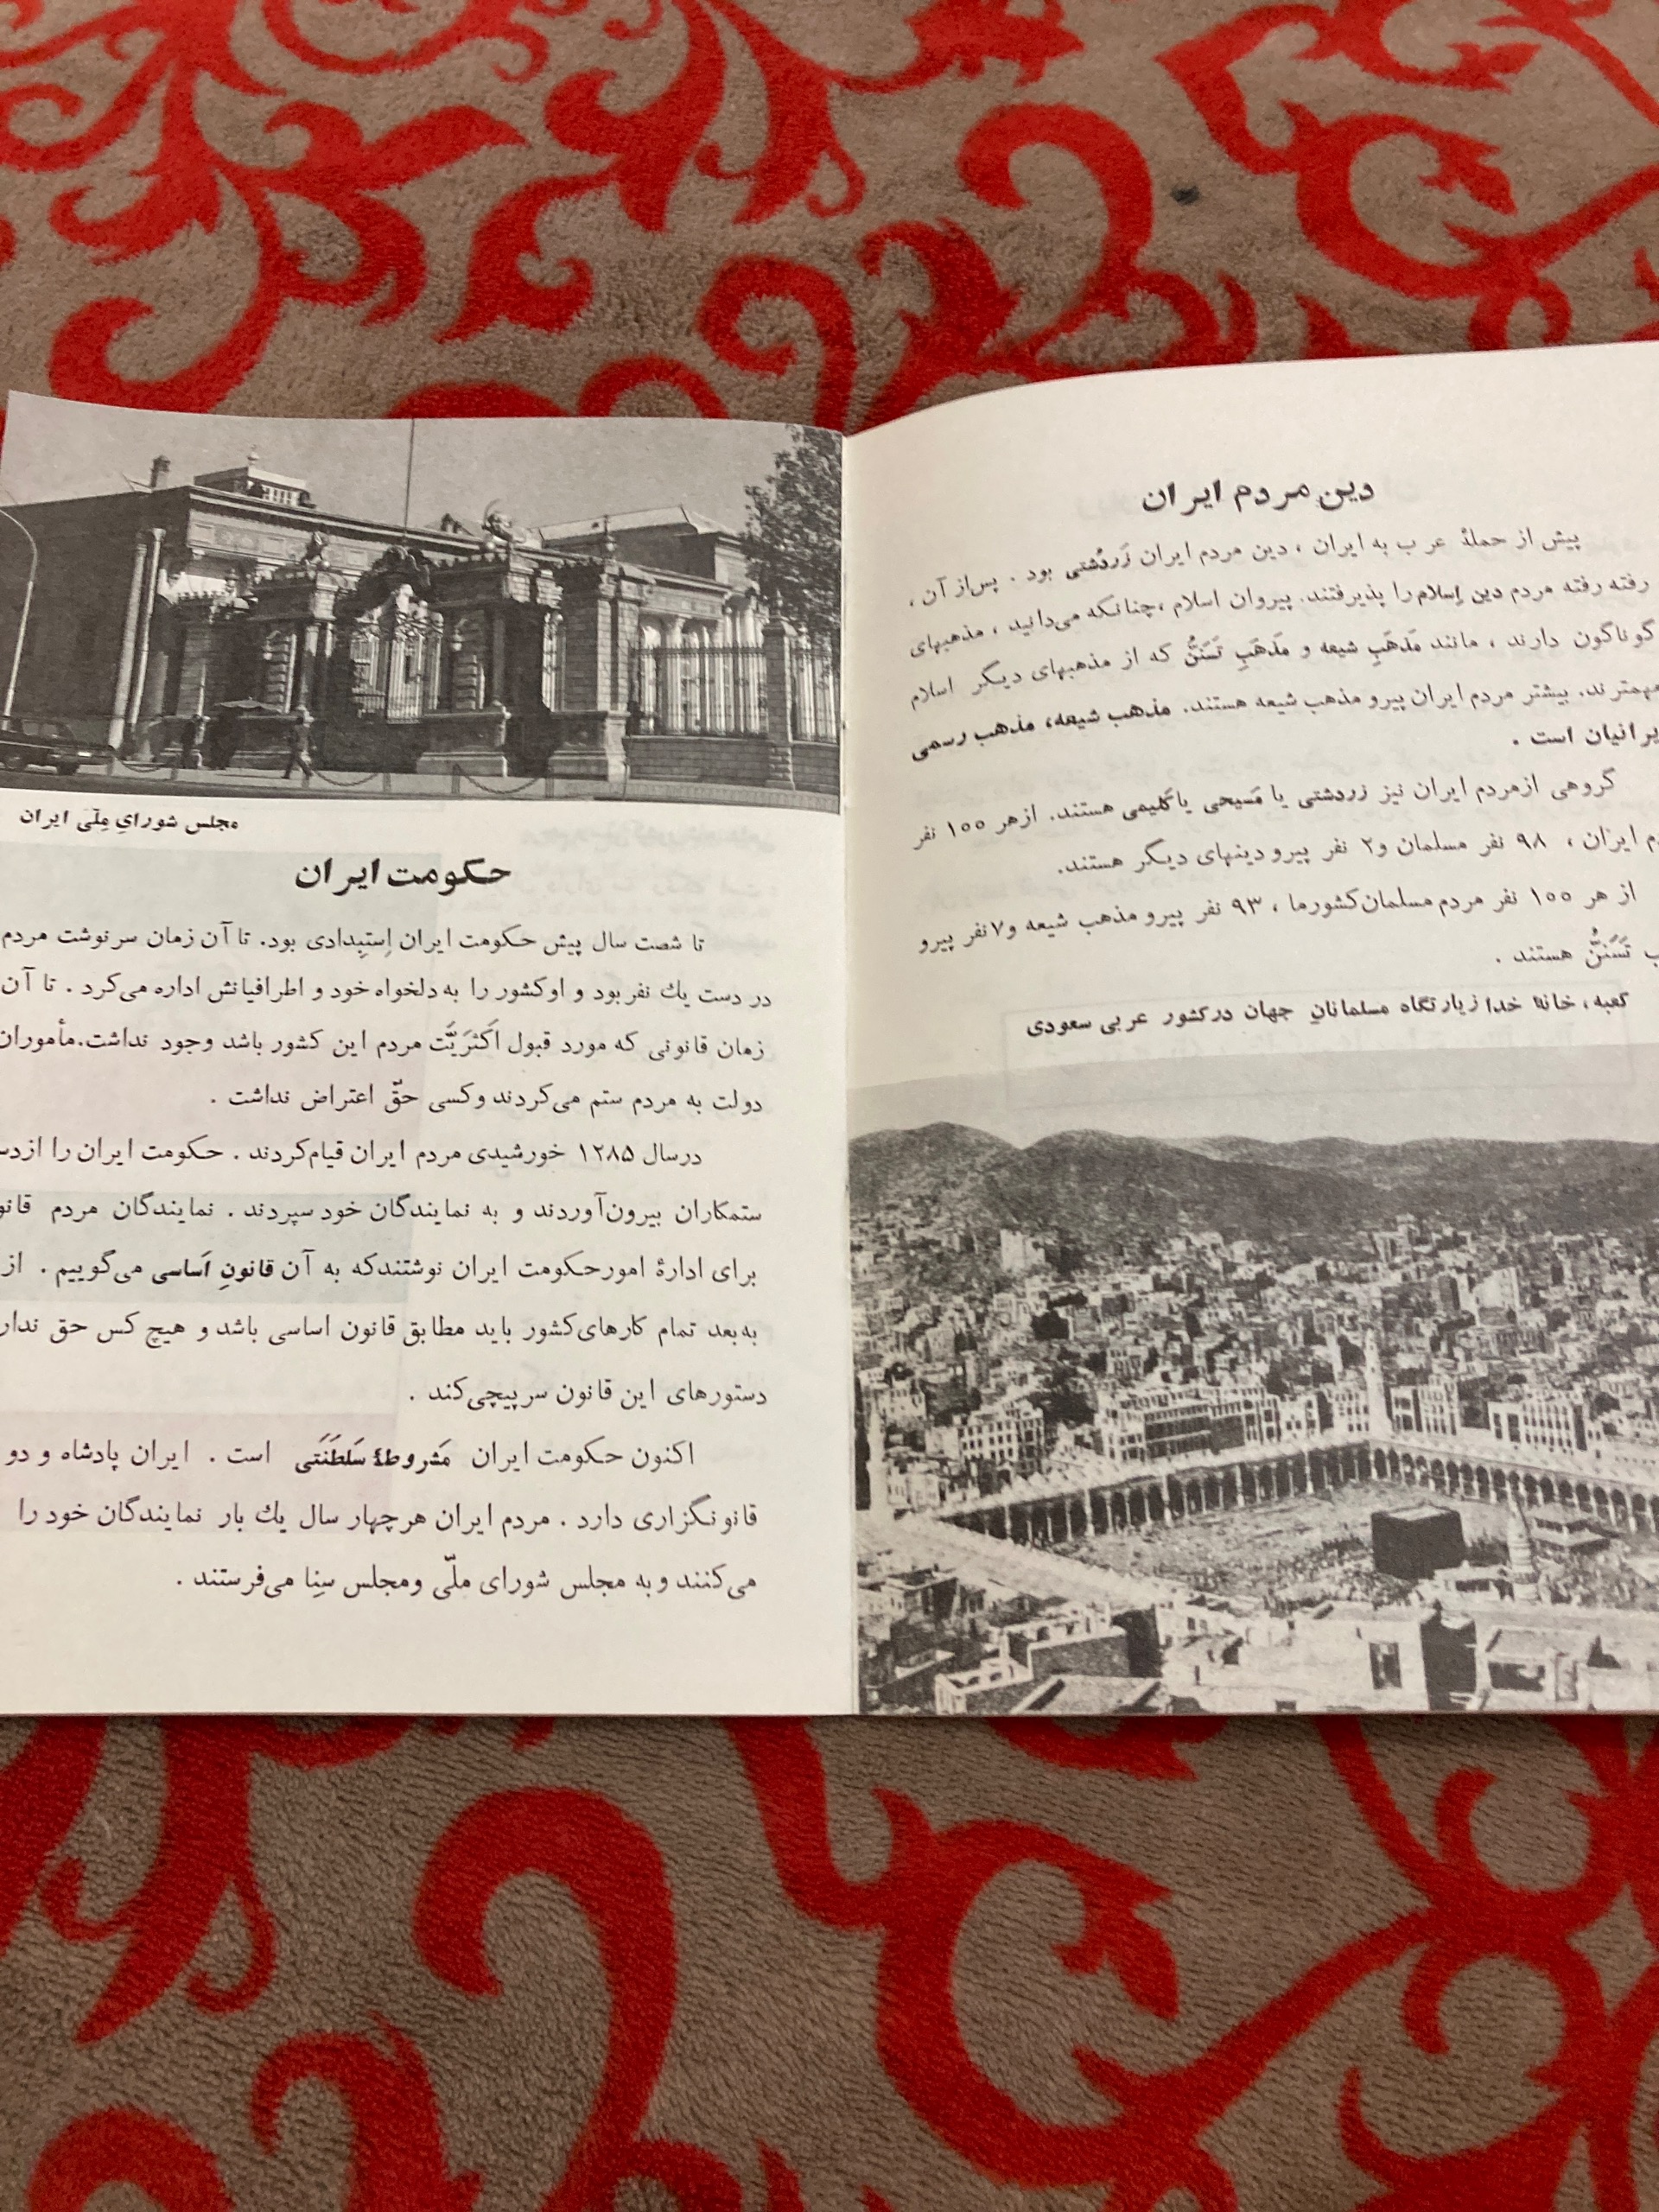 دین مردم ایران
پیش از حملهٔ عرب به ایران ، دین مردم ایران زَردُشتی بود . پس‌از آن ،
رفته رفته مردم دین اِسلام را پذیرفتند. پیروان اسلام ،چنانکه می‌دانید ، مذهبهای
گوناگون دارند ، مانند مَذهَبِ شیعه و مَذهَبِ تَسَنُّن که از مذهبهای دیگر اسلام
مهمترند. بیشتر مردم ایران پیرو مذهب شیعه هستند. مذهب شیعه، مذهب رسمی
یرانیان است .
گروهی ازمردم ایران نیز زردشتی یا مَسیحی یا کَلیمی هستند. ازهر ۱۰۰ نفر
دم ایران ، ۹۸ نفر مسلمان و۲ نفر پیرو دینهای دیگر هستند.
از هر ۱۰۰ نفر مردم مسلمان‌کشورما ، ۹۳ نفر پیرو مذهب شیعه و۷نفر پیرو
ب تَسَنُّن هستند .
کعبه، خانهٔ خدا زیارتگاه مسلمانانِ جهان درکشور عربی سعودی
مجلس شورایِ مِلّی ایران
حکومت ایران
تا شصت سال پیش حکومت ایران اِستِبدادی بود. تا آن زمان سرنوشت مردم
در دست یك نفربود و اوکشور را به دلخواه خود و اطرافیانش اداره می‌کرد . تا آن
زمان قانونی که مورد قبول اَکثَریَّت مردم این کشور باشد وجود نداشت.مأموران
دولت به مردم ستم می‌کردند وکسی حقّ اعتراض نداشت .
درسال ۱۲۸۵ خورشیدی مردم ایران قیام‌کردند . حکومت ایران را ازدس
ستمکاران بیرون‌آوردند و به نمایندگان خود سپردند . نمایندگان مردم قانو
برای ادارهٔ امورحکومت ایران نوشتندکه به آن قانونِ اَساسی می‌گوییم . از
به‌بعد تمام کارهای‌کشور باید مطابق قانون اساسی باشد و هیچ کس حق ندار
دستورهای این قانون سرپیچی‌کند .
اکنون حکومت ایران مَشروطهٔ سَلطَنَتی است . ایران پادشاه و دو
قانونگزاری دارد . مردم ایران هرچهار سال یك بار نمایندگان خود را
می‌کنند و به مجلس شورای ملّی ومجلس سِنا می‌فرستند .